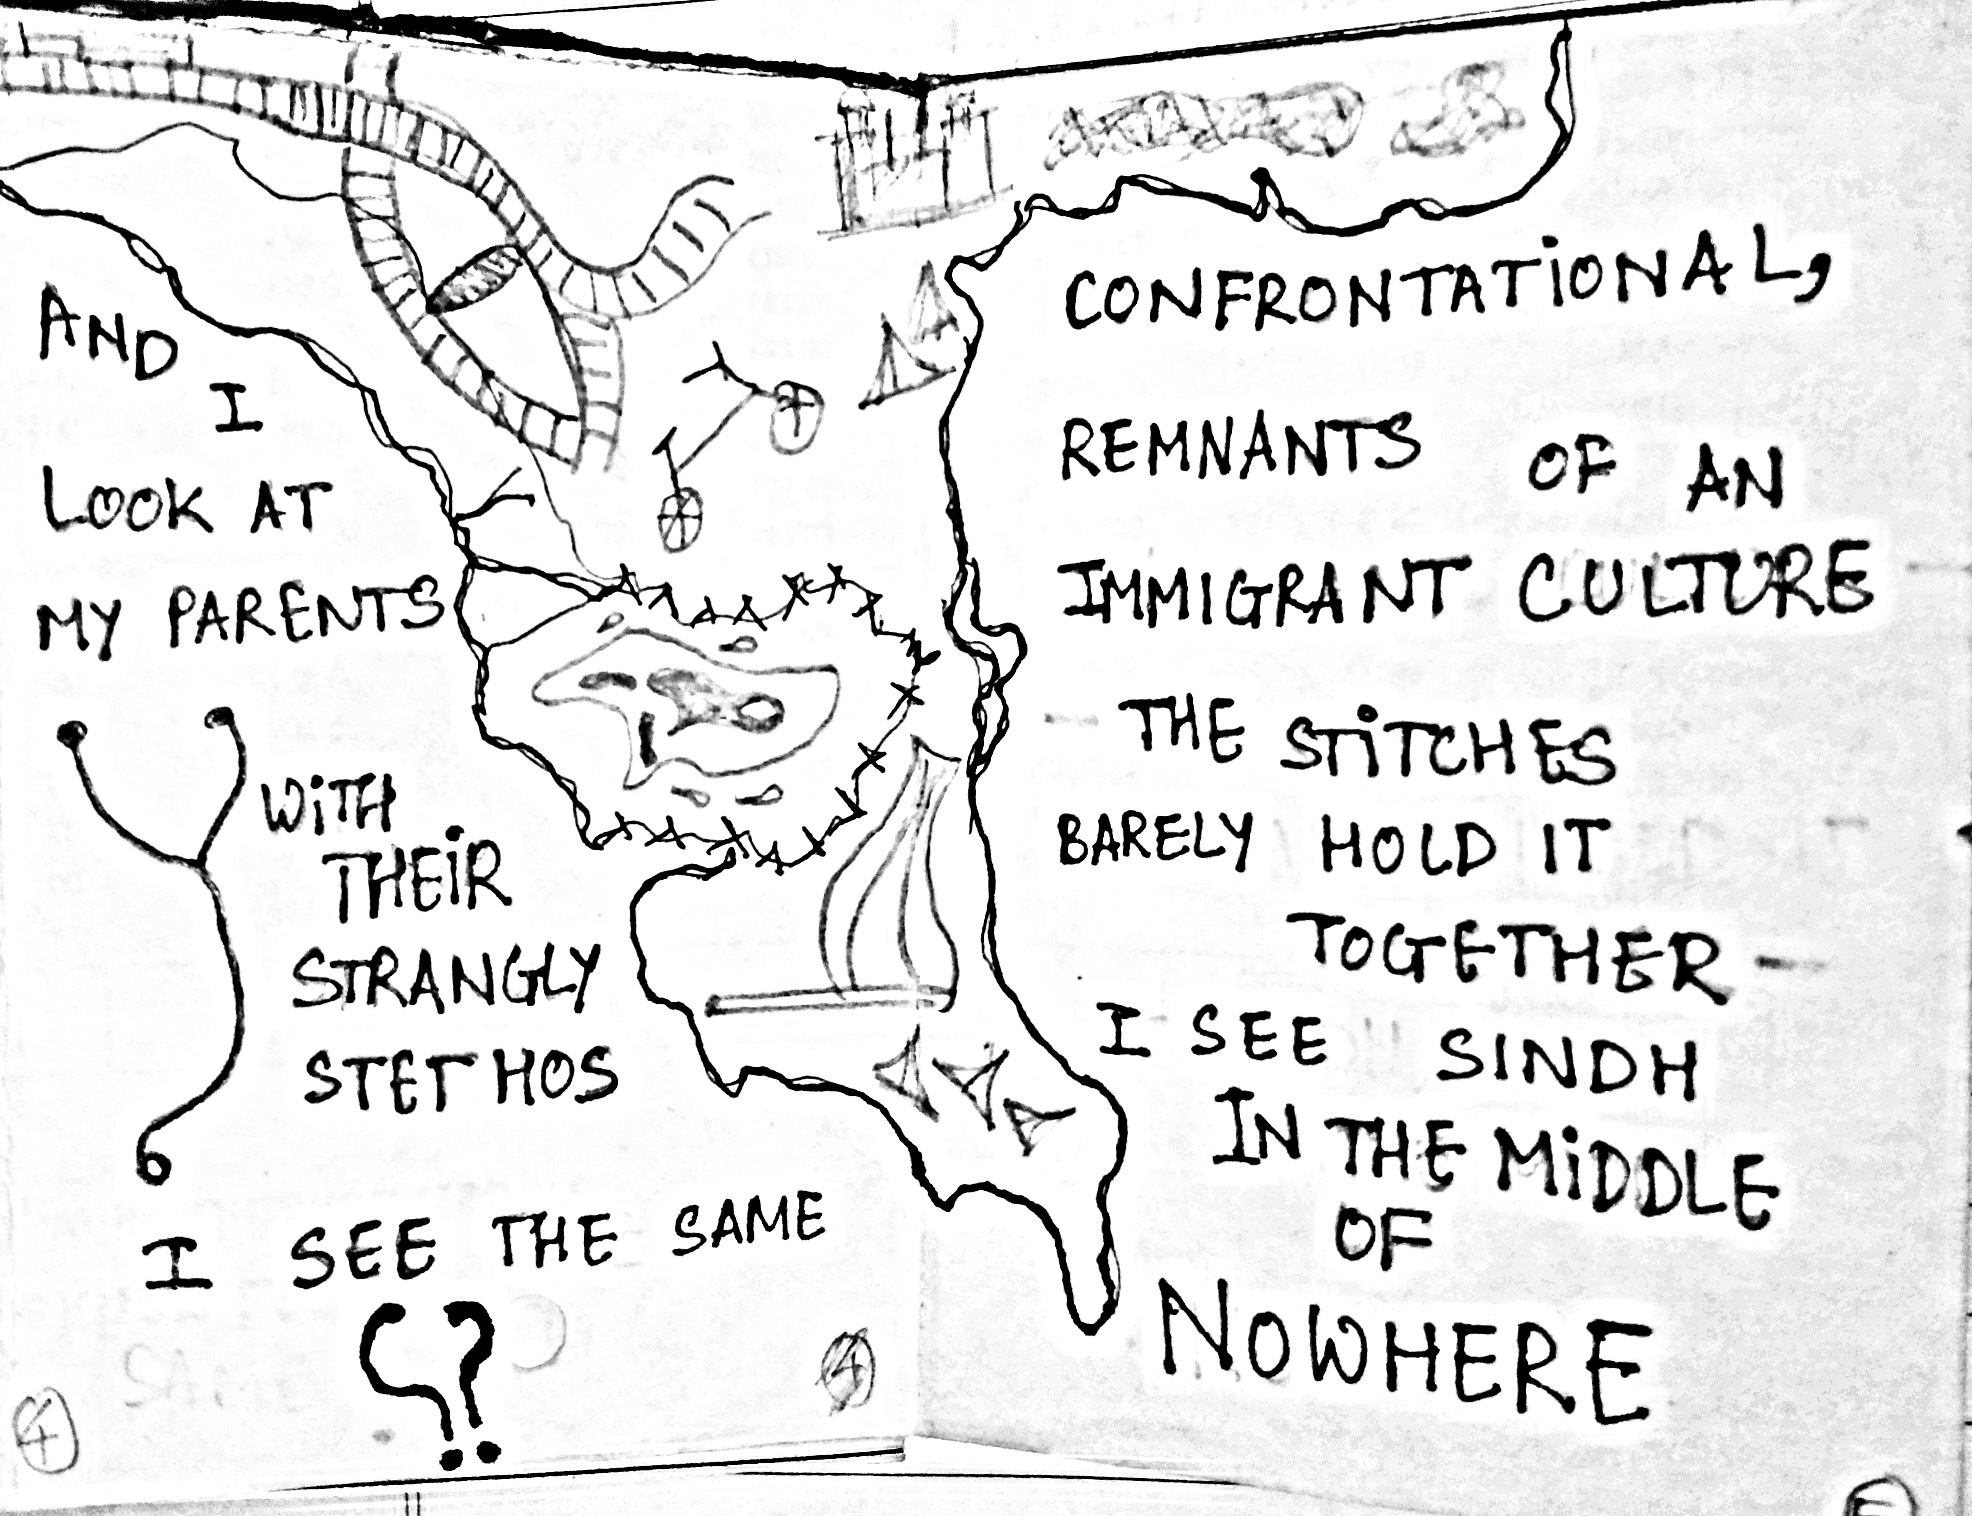 AND
I
LOOK AT
MY PARENTS
WiTH
THEiR
STRANGLY
STETHOS
I SEE THE SAME
4
4
CONFRONTATIONAL,
REMNANTS OF AN
IMMIGRANT CULTURE
THE STiTCHES
BARELY HOLD IT
TOGETHER -
I SEE SINDH
IN THE MiDDLE
OF
NOWHERE